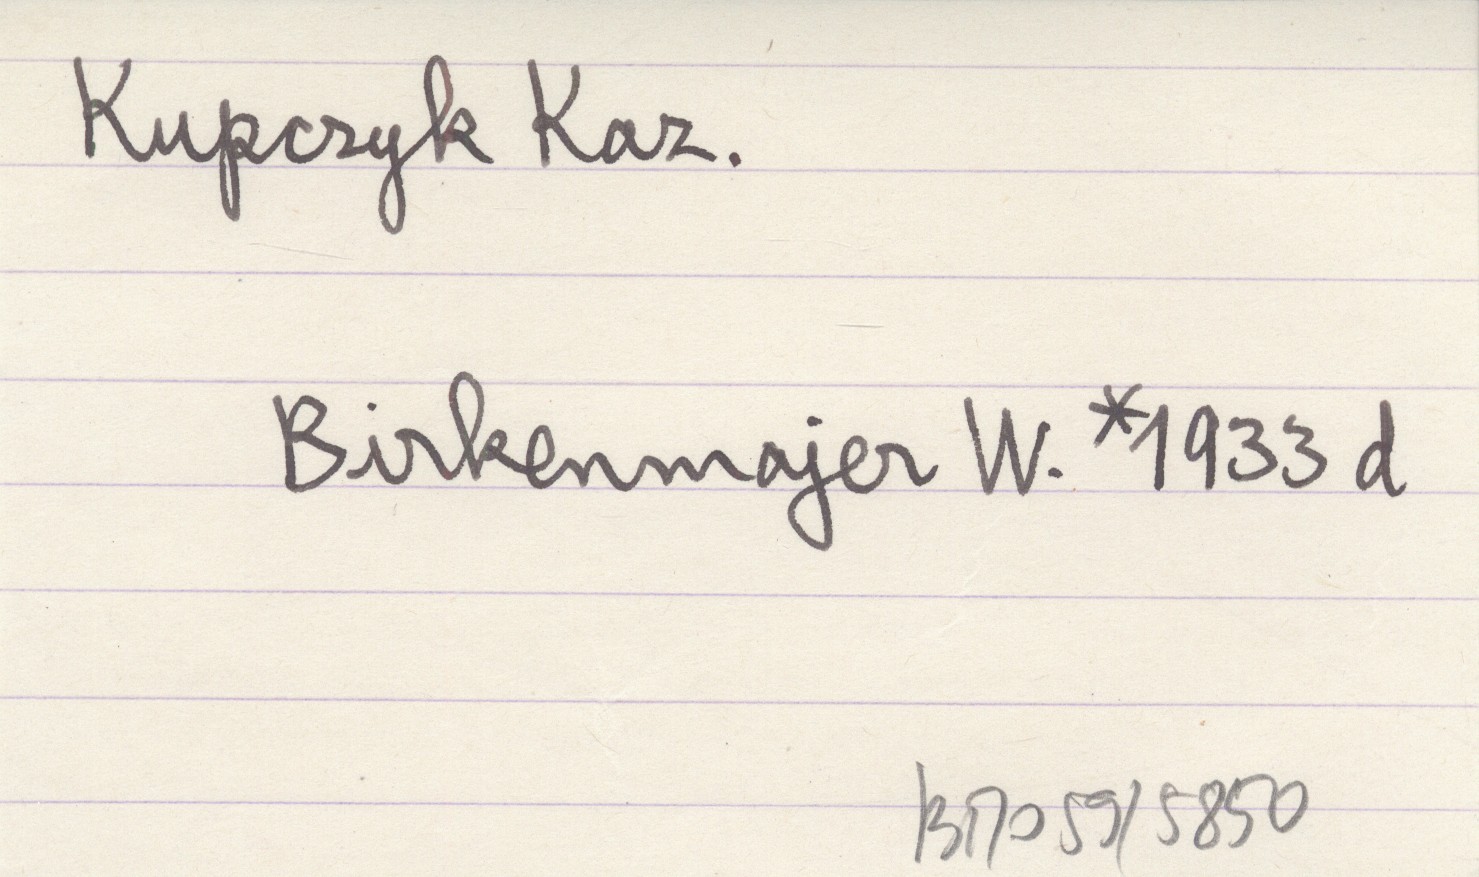 Kupczyk Kaz.
Birkenmajer W. *1933 d
59/5850